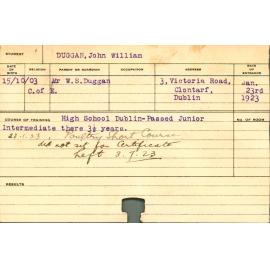 STUDENT DUGGAN, John William
DATE OF BIRTH RELIGION PARENT OR GUARDIAN OCCUPATION ADDRESS DATE OF ENTRANCE
15/10/03 C.of E. Mr W.S.Duggan 3, Victoria Road, Jan.
Clontarf, 23rd
Dublin 1923
COURSE OF TRAINING High School Dublin-Passed Junior NO. OF ROOM
Intermediate there 3½ years.
23.1.23. Poultry Short Course
did not sit for Certificate
Left 3.7.23
RESULTS
RESULTS